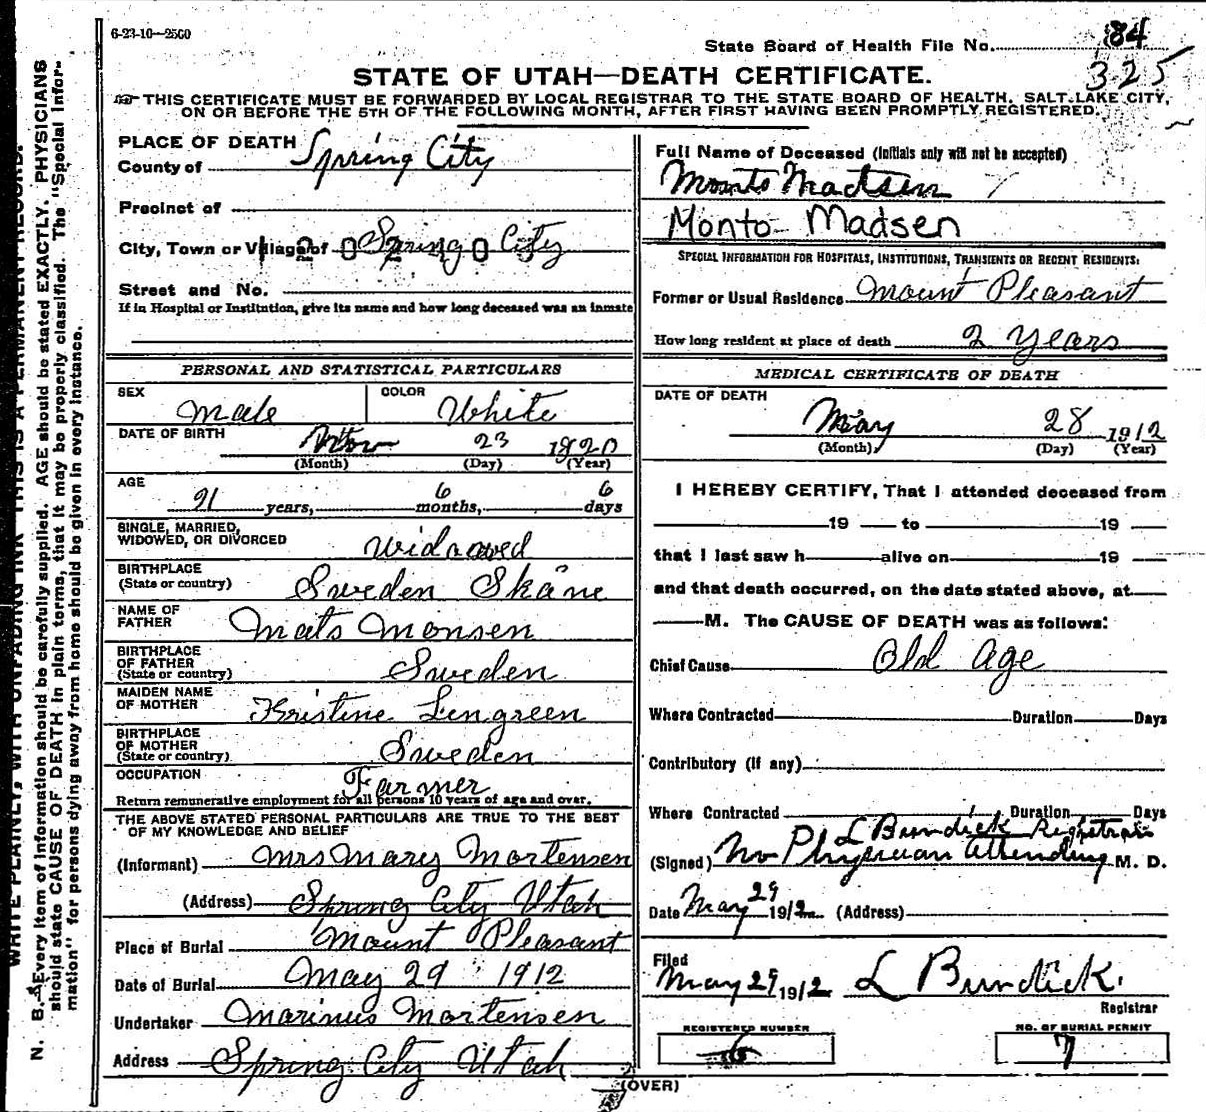 6-23-10—2500
State Board of Health File No. 84
325
STATE OF UTAH—DEATH CERTIFICATE.
THIS CERTIFICATE MUST BE FORWARDED BY LOCAL REGISTRAR TO THE STATE BOARD OF HEALTH, SALT LAKE CITY,
ON OR BEFORE THE 5TH OF THE FOLLOWING MONTH, AFTER FIRST HAVING BEEN PROMPTLY REGISTERED.
PLACE OF DEATH
County of Spring City
Precinct of
City, Town or Village of Spring City
Street and No.
If in Hospital or Institution, give its name and how long deceased was an inmate
PERSONAL AND STATISTICAL PARTICULARS
SEX Male COLOR White
DATE OF BIRTH Nov 23 1820
(Month) (Day) (Year)
AGE
91 years, 6 months, 6 days
SINGLE, MARRIED,
WIDOWED, OR DIVORCED Widowed
BIRTHPLACE
(State or country) Sweden Skåne
NAME OF
FATHER Mats Monsen
BIRTHPLACE
OF FATHER
(State or country) Sweden
MAIDEN NAME
OF MOTHER Kristine Lengreen
BIRTHPLACE
OF MOTHER
(State or country) Sweden
OCCUPATION Farmer
Return remunerative employment for all persons 10 years of age and over.
THE ABOVE STATED PERSONAL PARTICULARS ARE TRUE TO THE BEST
OF MY KNOWLEDGE AND BELIEF
(Informant) Mrs Mary Mortensen
(Address) Spring City Utah
Place of Burial Mount Pleasant
Date of Burial May 29 1912
Undertaker Marinus Mortensen
Address Spring City Utah
Full Name of Deceased (Initials only will not be accepted)
Monto Madsen
Monto Madsen
SPECIAL INFORMATION FOR HOSPITALS, INSTITUTIONS, TRANSIENTS OR RECENT RESIDENTS:
Former or Usual Residence Mount Pleasant
How long resident at place of death 2 Years
MEDICAL CERTIFICATE OF DEATH
DATE OF DEATH
May 28 1912
(Month) (Day) (Year)
I HEREBY CERTIFY, That I attended deceased from
19 to 19
that I last saw h alive on 19
and that death occurred, on the date stated above, at
M. The CAUSE OF DEATH was as follows:
Chief Cause Old Age
Where Contracted Duration Days
Contributory (if any)
Where Contracted Duration Days
L Bundick Registrar
(Signed) No Physician Attending M. D.
Date May 29 1912 (Address)
Filed
May 29 1912 L Bundick.
Registrar
REGISTERED NUMBER
6
NO. OF BURIAL PERMIT
7
(OVER)
WRITE PLAINLY, WITH UNFADING INK THIS IS A PERMANENT RECORD.
N. B. Every item of information should be carefully supplied. AGE should be stated EXACTLY. PHYSICIANS
should state CAUSE OF DEATH in plain terms, that it may be properly classified. The "Special Infor-
mation" for persons dying away from home should be given in every instance.